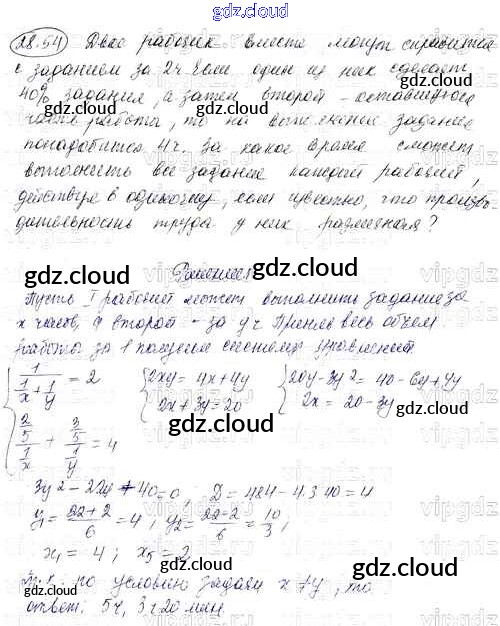 gdz.cloud
28.54 Двое рабочих вместе могут справиться
с заданием за 2ч. Если один из них сделает
40% задания, а затем второй – оставшуюся
часть работы, то на выполнение задание
понадобится 4ч. За какое время сможет
выполнить все задание каждый рабочий,
действуя в одиночку, если известно, что произво
дительность труда у них различная?
gdz.cloud gdz.cloud
Решение:
Пусть I рабочий может выполнить задание за
x часов, а второй – за y ч. Примем весь объем
работы за 1 получие систему уравнений
gdz.cloud gdz.cloud
1/(1/x + 1/y) = 2 2xy = 4x + 4y 20y - 3y² = 40 - 6y + 4y
2x + 3y = 20 2x = 20 - 3y
(2/5)/(1/x) + (3/5)/(1/y) = 4
gdz.cloud gdz.cloud
3y² - 22y + 40 = 0; D = 484 - 4·3·40 = 4
y = (22+2)/6 = 4; y₂ = (22-2)/6 = 10/3;
x₁ = 4; x₅ = 2
gdz.cloud gdz.cloud
Т.к. по условию задачи x ≠ y, то
ответ: 5ч, 3ч 20 мин.
gdz.cloud